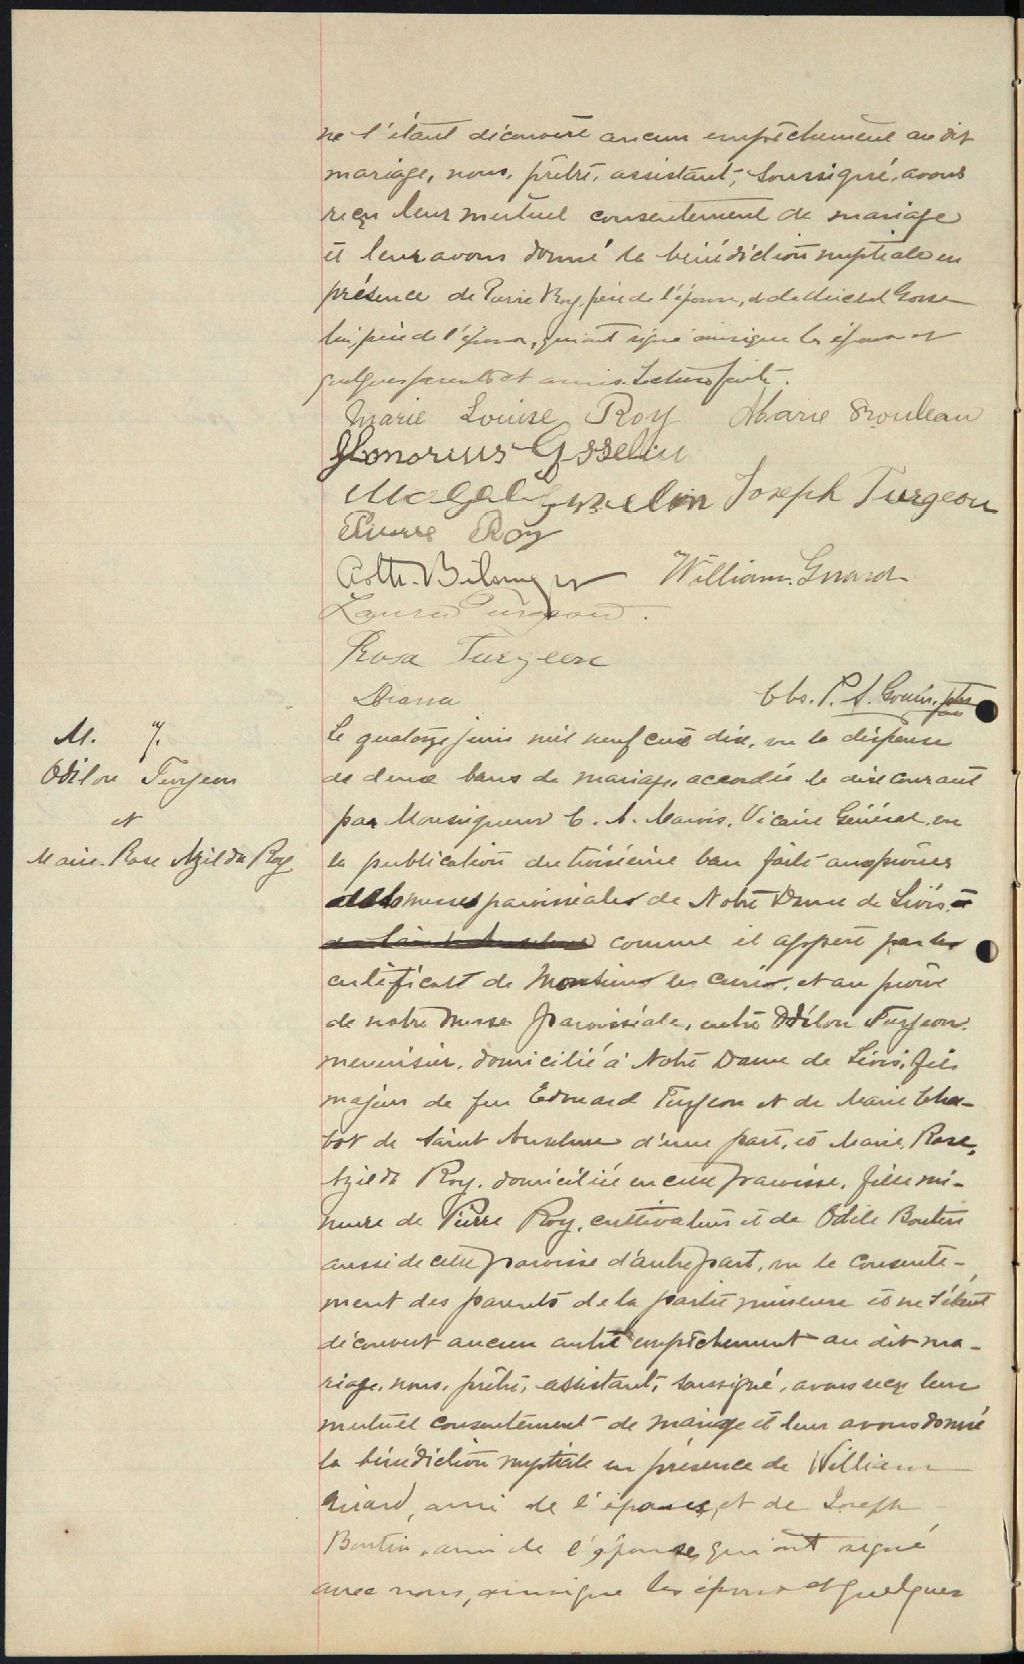 ne s'étant découvert aucun empêchement au dit
mariage, nous, prêtre, assistant, soussigné, avons
reçu leur mutuel consentement de mariage
et leur avons donné la bénédiction nuptiale en
présence de Pierre Roy, père de l'épouse, et de Michel Gosse-
lin, père de l'époux, qui ont signé ainsi que les époux et
quelques parents et amis. Lecture faite.
Marie Louise Roy Marie Drouleau
Honorius Gosselin
Gosselin Joseph Turgeon
Pierre Roy
William Girard
Laura Turgeon.
Rosa Turgeon
Diana
Chs. P. A. Gouin, ptre
M. 7.
Odilon Turgeon
et
Marie-Rose Azilda Roy
Le quatorze juin mil neuf cent dix, vu la dispense
de deux bans de mariage, accordée le dix courant
par Monseigneur C. A. Marois, Vicaire Général, vu
la publication du troisième ban faite aux prônes
messes paroissiales de Notre Dame de Lévis, et
comme il appert par les
certificats de Messieurs les curés, et au prône
de notre messe paroissiale, entre Odilon Turgeon,
menuisier, domicilié à Notre Dame de Lévis, fils
majeur de feu Edouard Turgeon et de Marie Cha-
bot de Saint Anselme d'une part, et Marie, Rose,
Azilda Roy, domiciliée en cette paroisse, fille mi-
neure de Pierre Roy, cultivateur et de Odile Boutin
aussi de cette paroisse d'autre part, vu le consente-
ment des parents de la partie mineure et ne s'étant
découvert aucun autre empêchement au dit ma-
riage, nous, prêtre, assistant, soussigné, avons reçu leur
mutuel consentement de mariage et leur avons donné
la bénédiction nuptiale en présence de William
Girard, ami de l'époux, et de Joseph
Boutin, ami de l'épouse, qui ont signé
avec nous, ainsi que les époux et quelques